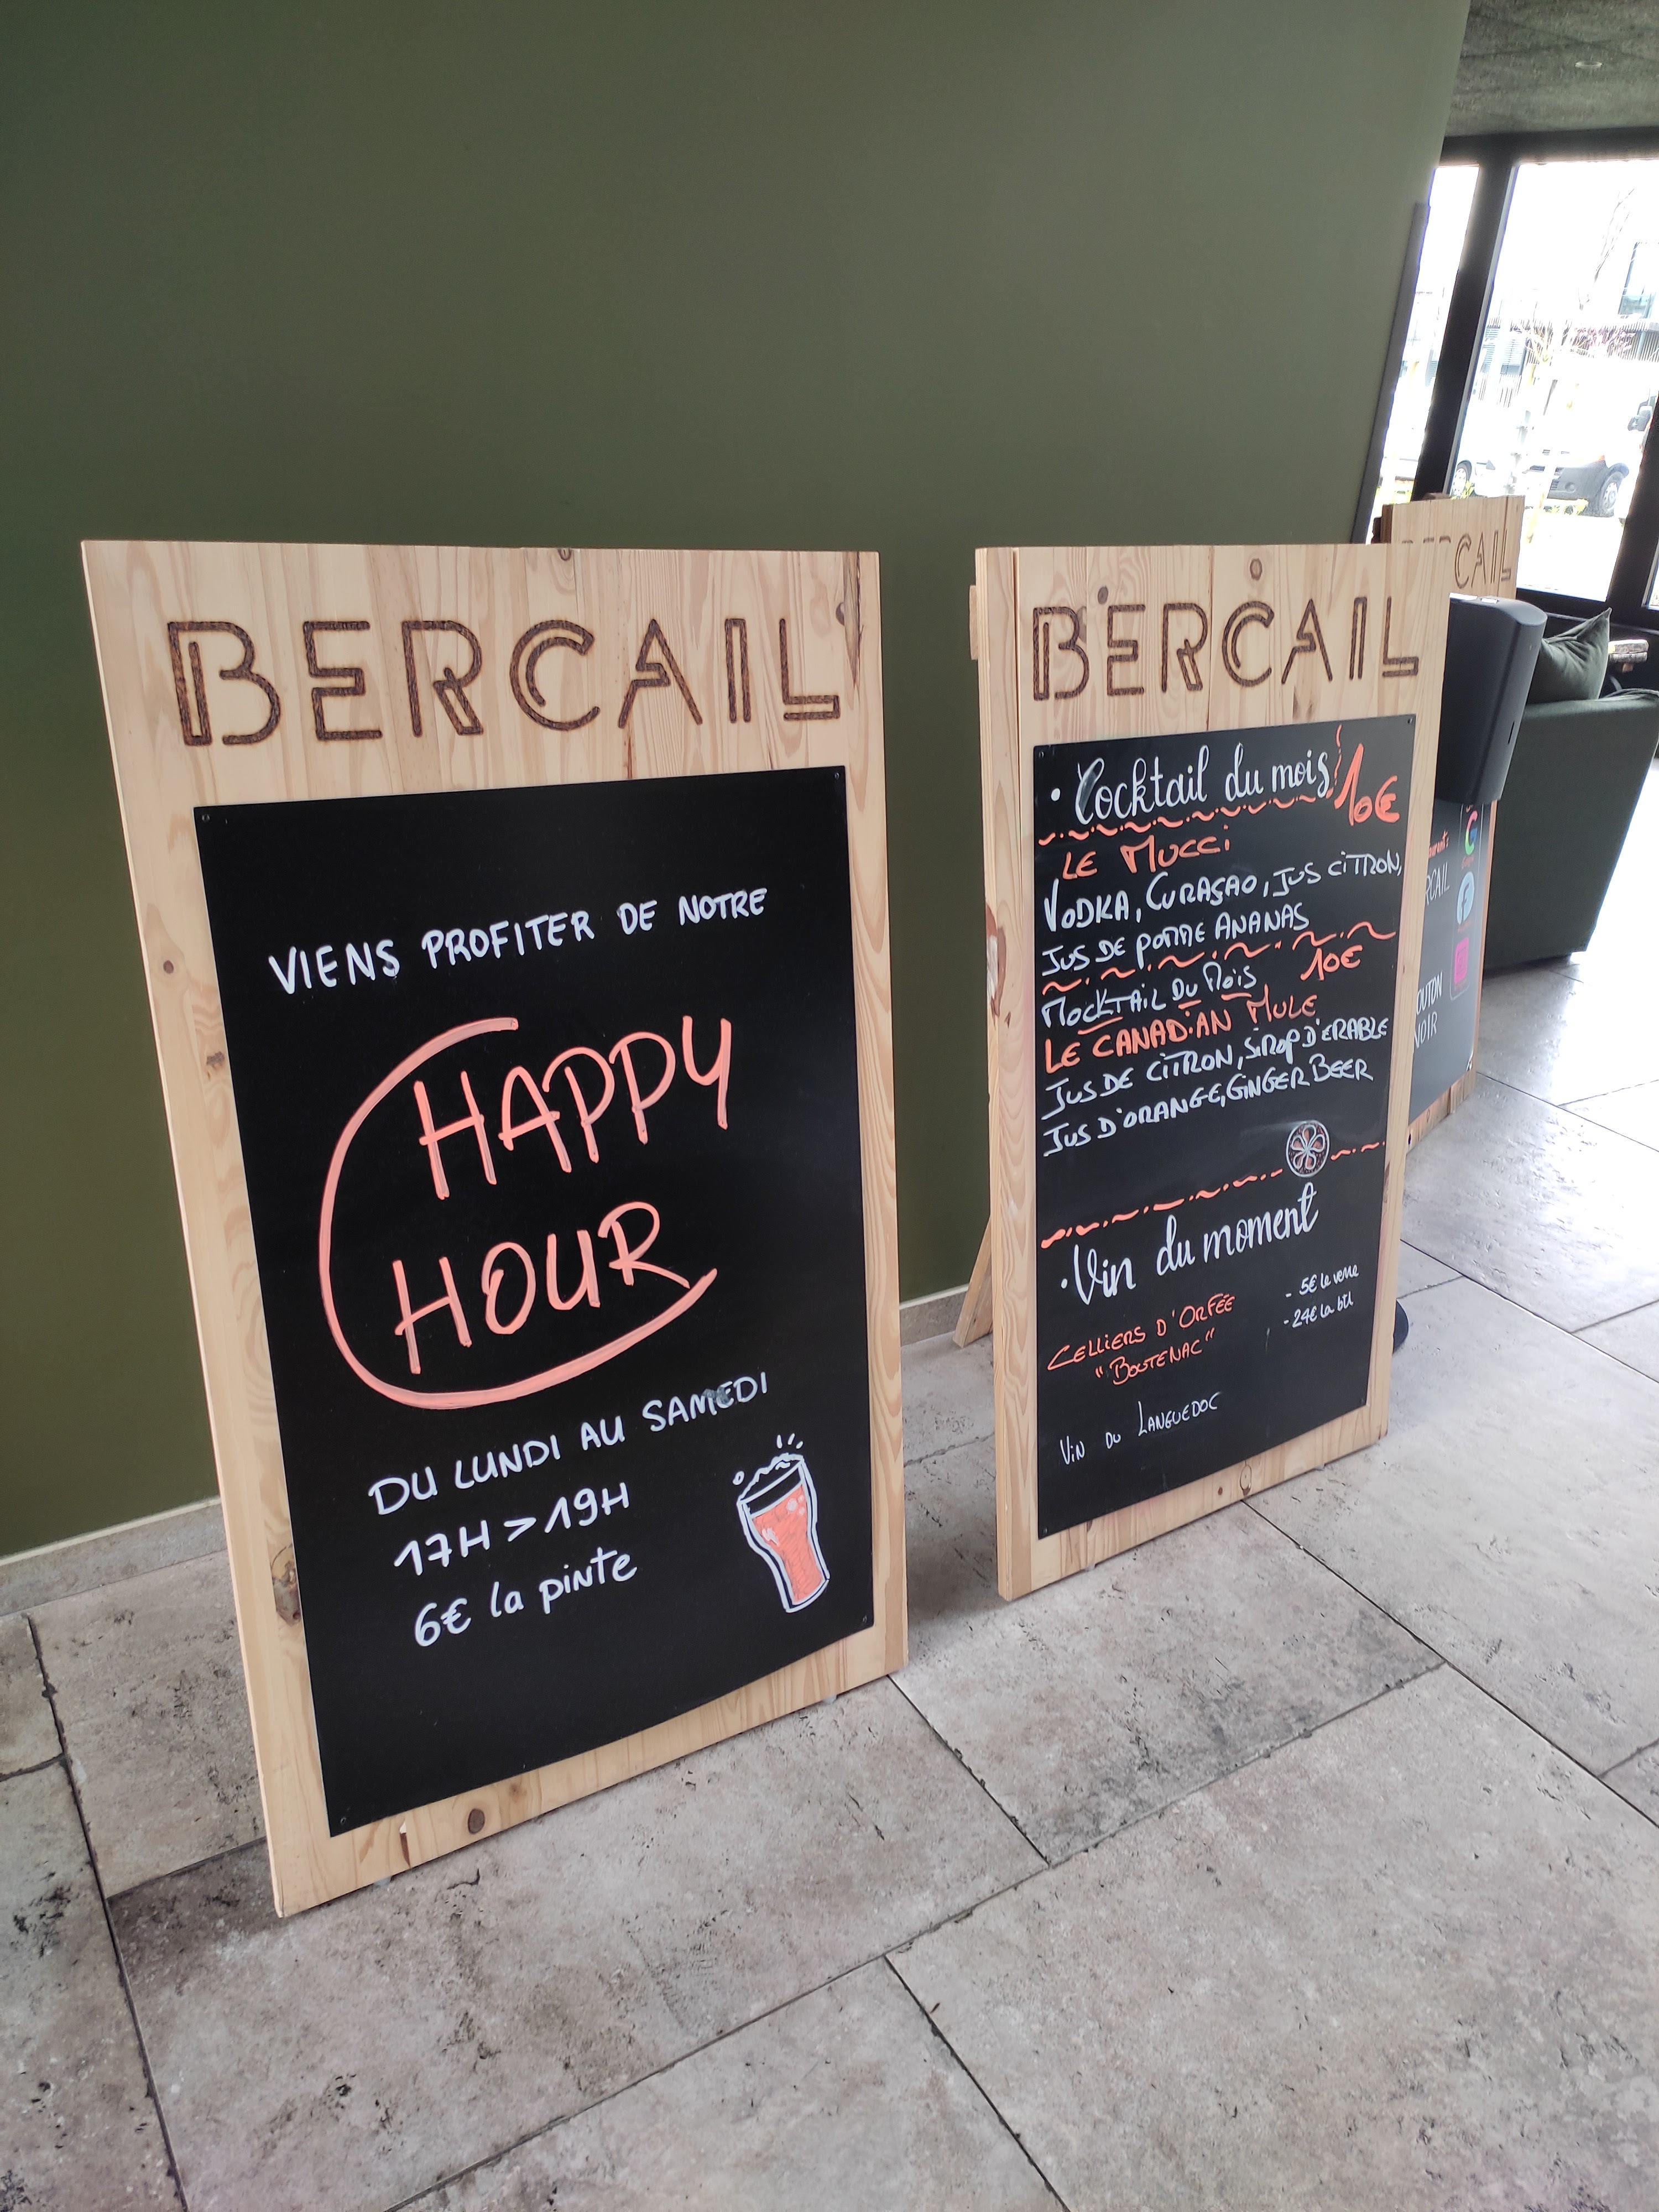 BERCAIL
VIENS PROFITER DE NOTRE
HAPPY
HOUR
DU LUNDI AU SAMEDI
17H > 19H
6€ la pinte
BERCAIL
• Cocktail du mois 10€
LE MUCCI
VODKA, CURAÇAO, JUS CITRON,
JUS DE POMME ANANAS
MOCKTAIL DU MOIS 10€
LE CANADIAN MULE
JUS DE CITRON, SIROP D'ERABLE
JUS D'ORANGE, GINGER BEER
• Vin du moment
- 5€ le verre
- 24€ la btl
CELLIERS D'ORFÉE
"BOUTENAC"
VIN DU LANGUEDOC
CAIL
G
RCAIL
OUTON
NOIR